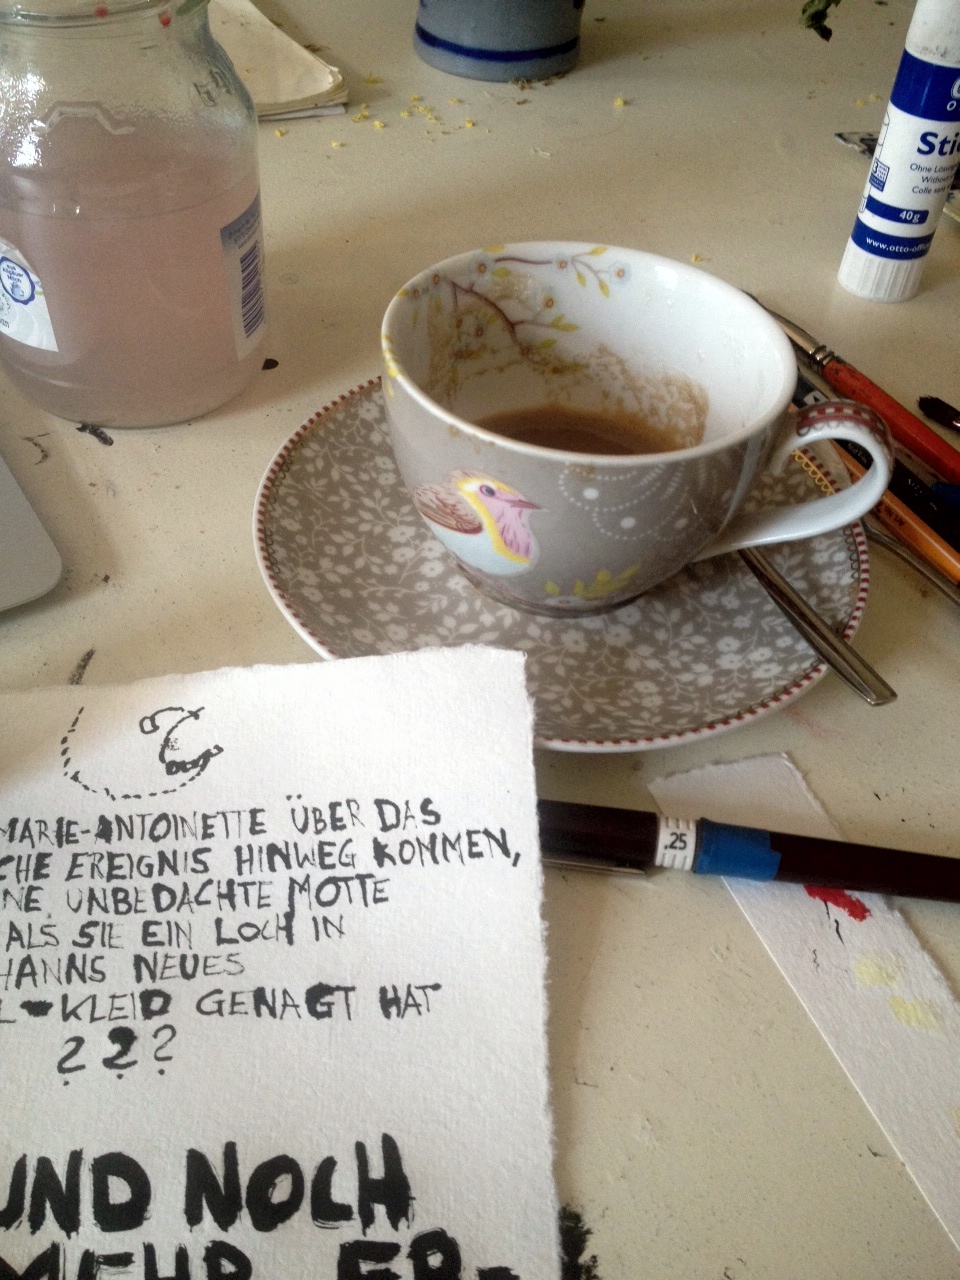 MARIE-ANTOINETTE ÜBER DAS
CHE EREIGNIS HINWEG KOMMEN,
NE UNBEDACHTE MOTTE
ALS SIE EIN LOCH IN
HANNS NEUES
L-KLEID GENAGT HAT
???
UND NOCH
MEHR ER-
Sti
Ohne Lös
Withou
Colle san
40g
www.otto-offi
.25